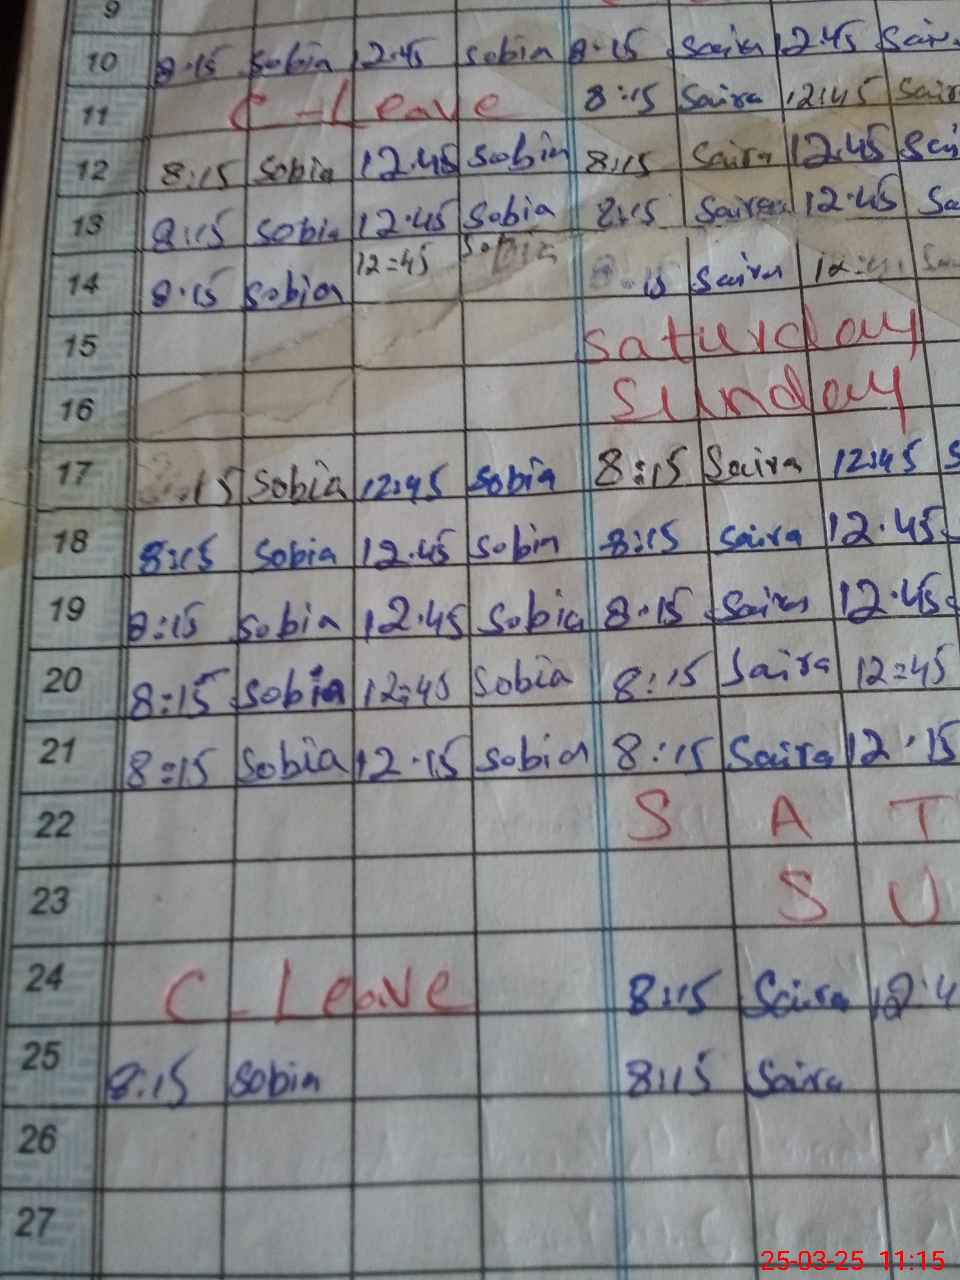 9
10 8:15 Sobia 12:45 Sobia 8:15 Saira 12:45
11 C-Leave 8:15 Saira 12:45 Sair
12 8:15 Sobia 12.45 Sobia 8:15 Saira 12.45 Sai
13 8:15 Sobia 12.45 Sobia 8:15 Saira 12.45 Sa
14 8.15 Sobia 12=45 Sobia 15 Saira
15 Saturday
16 Sunday
17 15 Sobia 12:45 Sobia 8:15 Saira 12:45 S
18 8:15 Sobia 12.45 Sobia 8:15 Saira 12.45
19 8:15 Sobia 12.45 Sobia 8.15 Saira 12.45
20 8:15 Sobia 12:45 Sobia 8:15 Saira 12=45
21 8=15 Sobia 12.15 Sobia 8:15 Saira 12.15
22 S A T
23 S U
24 C-Leave 8:15 Saira 12.4
25 8:15 Sobia 8:15 Saira
26
27
25-03-25 11:15